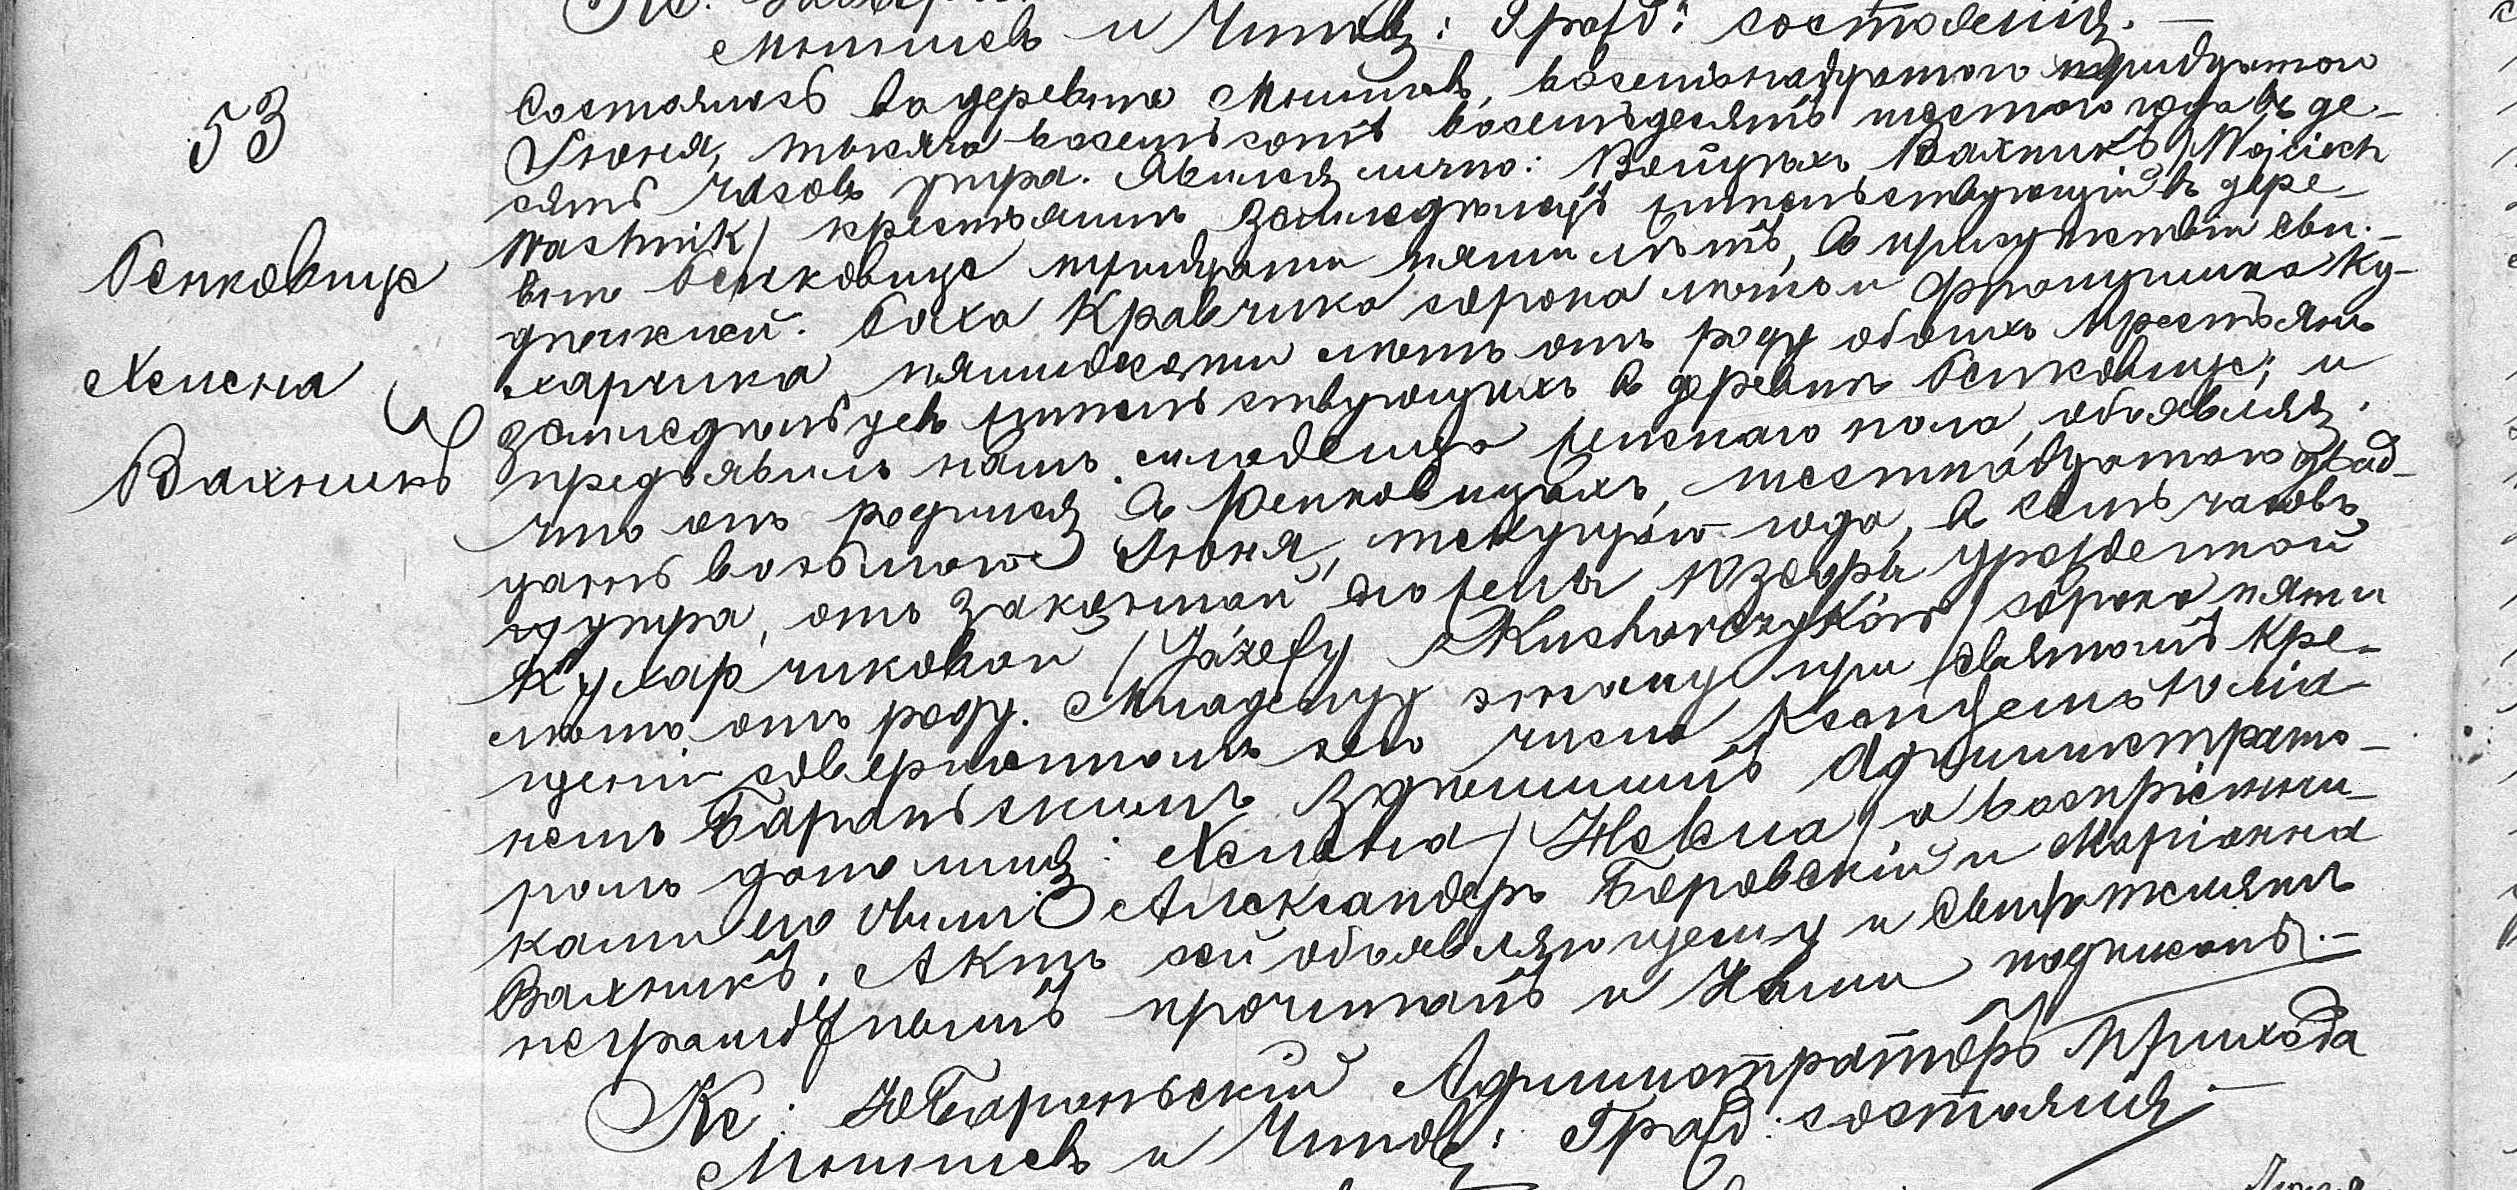 Мнишевъ и Чиновъ: Гражд: состоянія. —
53
Репковице
Хелена
Вахникъ
Состоялось въ деревнѣ Мнишевъ, восемнадцатого тридцатого
Іюня, тысяча восемьсотъ восемьдесятъ шестого года въ де-
сять часовъ утра. Явился лично: Войцехъ Вахникъ /Wojciech
Wachnik/ крестьянинъ земледѣлецъ жительствующій въ дере-
внѣ Репковице тридцати пяти лѣтъ, въ присутствіи сви-
дѣтелей: Роха Кравчика сорока лѣтъ и Францишка Ку-
харчика пятидесяти лѣтъ отъ роду обоихъ крестьянъ
земледѣльцевъ жительствующихъ въ деревнѣ Репковице; и
предъявилъ намъ младенца женскаго пола, объявляя,
что онъ родился въ Репковицахъ, шестнадцатого двад-
цать восьмого Іюня, текущаго года, въ семь часовъ
утра, отъ законной его жены Юзефы урожденной
Кухарчиковой /Józefy Kucharczyków/ сорока пяти
лѣтъ отъ роду. Младенцу этому при святомъ кре-
щеніи совершенномъ сего числа Ксендземъ Юліа-
номъ Бараньскимъ здѣшнимъ Администрато-
ромъ дано имя: Хелена /Helena/ а воспріемни-
ками его были: Александеръ Боровскій и Маріанна
Вахникъ. Актъ сей объявляющему и свидѣтелямъ
неграмотнымъ прочитанъ и Нами подписанъ. —
Кс: Ю Бараньскій Администраторъ Прихода
Мнишевъ и Чиновъ: Гражд: состоянія —